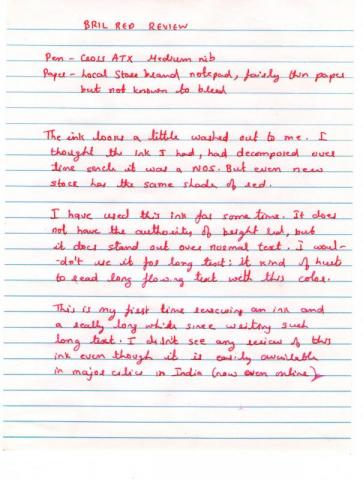 BRIL RED REVIEW
Pen - Cross ATX Medium nib
Paper - Local Store brand notepad, fairly thin paper
but not known to bleed
The ink looks a little washed out to me. I
thought the ink I had, had decomposed over
time since it was a NOS. But even new
stock has the same shade of red.
I have used this ink for some time. It does
not have the authority of bright red, but
it does stand out over normal text. I woul-
-dn't use it for long text: it kind of hurts
to read long flowing text with this color.
This is my first time reviewing an ink and
a really long while since writing such
long text. I didn't see any review of this
ink even though it is easily available
in major cities in India (now even online)